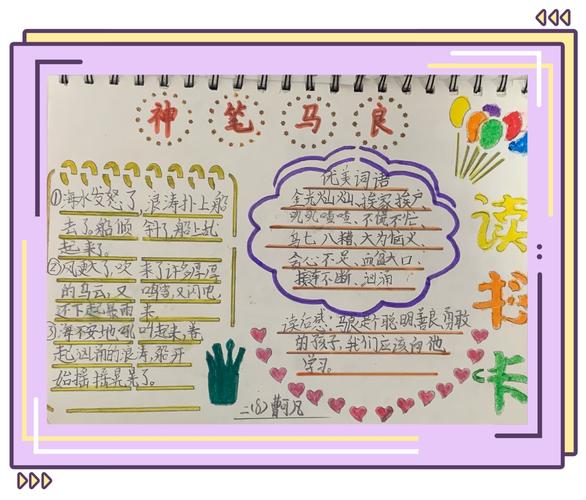 神笔马良
读书卡
①海水发怒了,浪涛扑上船
去了。船倾斜了,船上乱
起来了。
②风更大了,吹来了许多厚厚
的乌云,又打雷,又闪电,
还下起暴雨来。
③海不安地吼叫起来,卷
起汹涌的浪涛,船开
始摇摇晃晃了。
优美词语
金光灿灿、挨家挨户
叽叽喳喳、不慌不忙、
乱七八糟、大为恼火、
贪心不足、血盆大口、
接连不断、汹涌
读后感:马良是个聪明善良勇敢
的孩子,我们应该向他
学习。
二(8)曹可凡